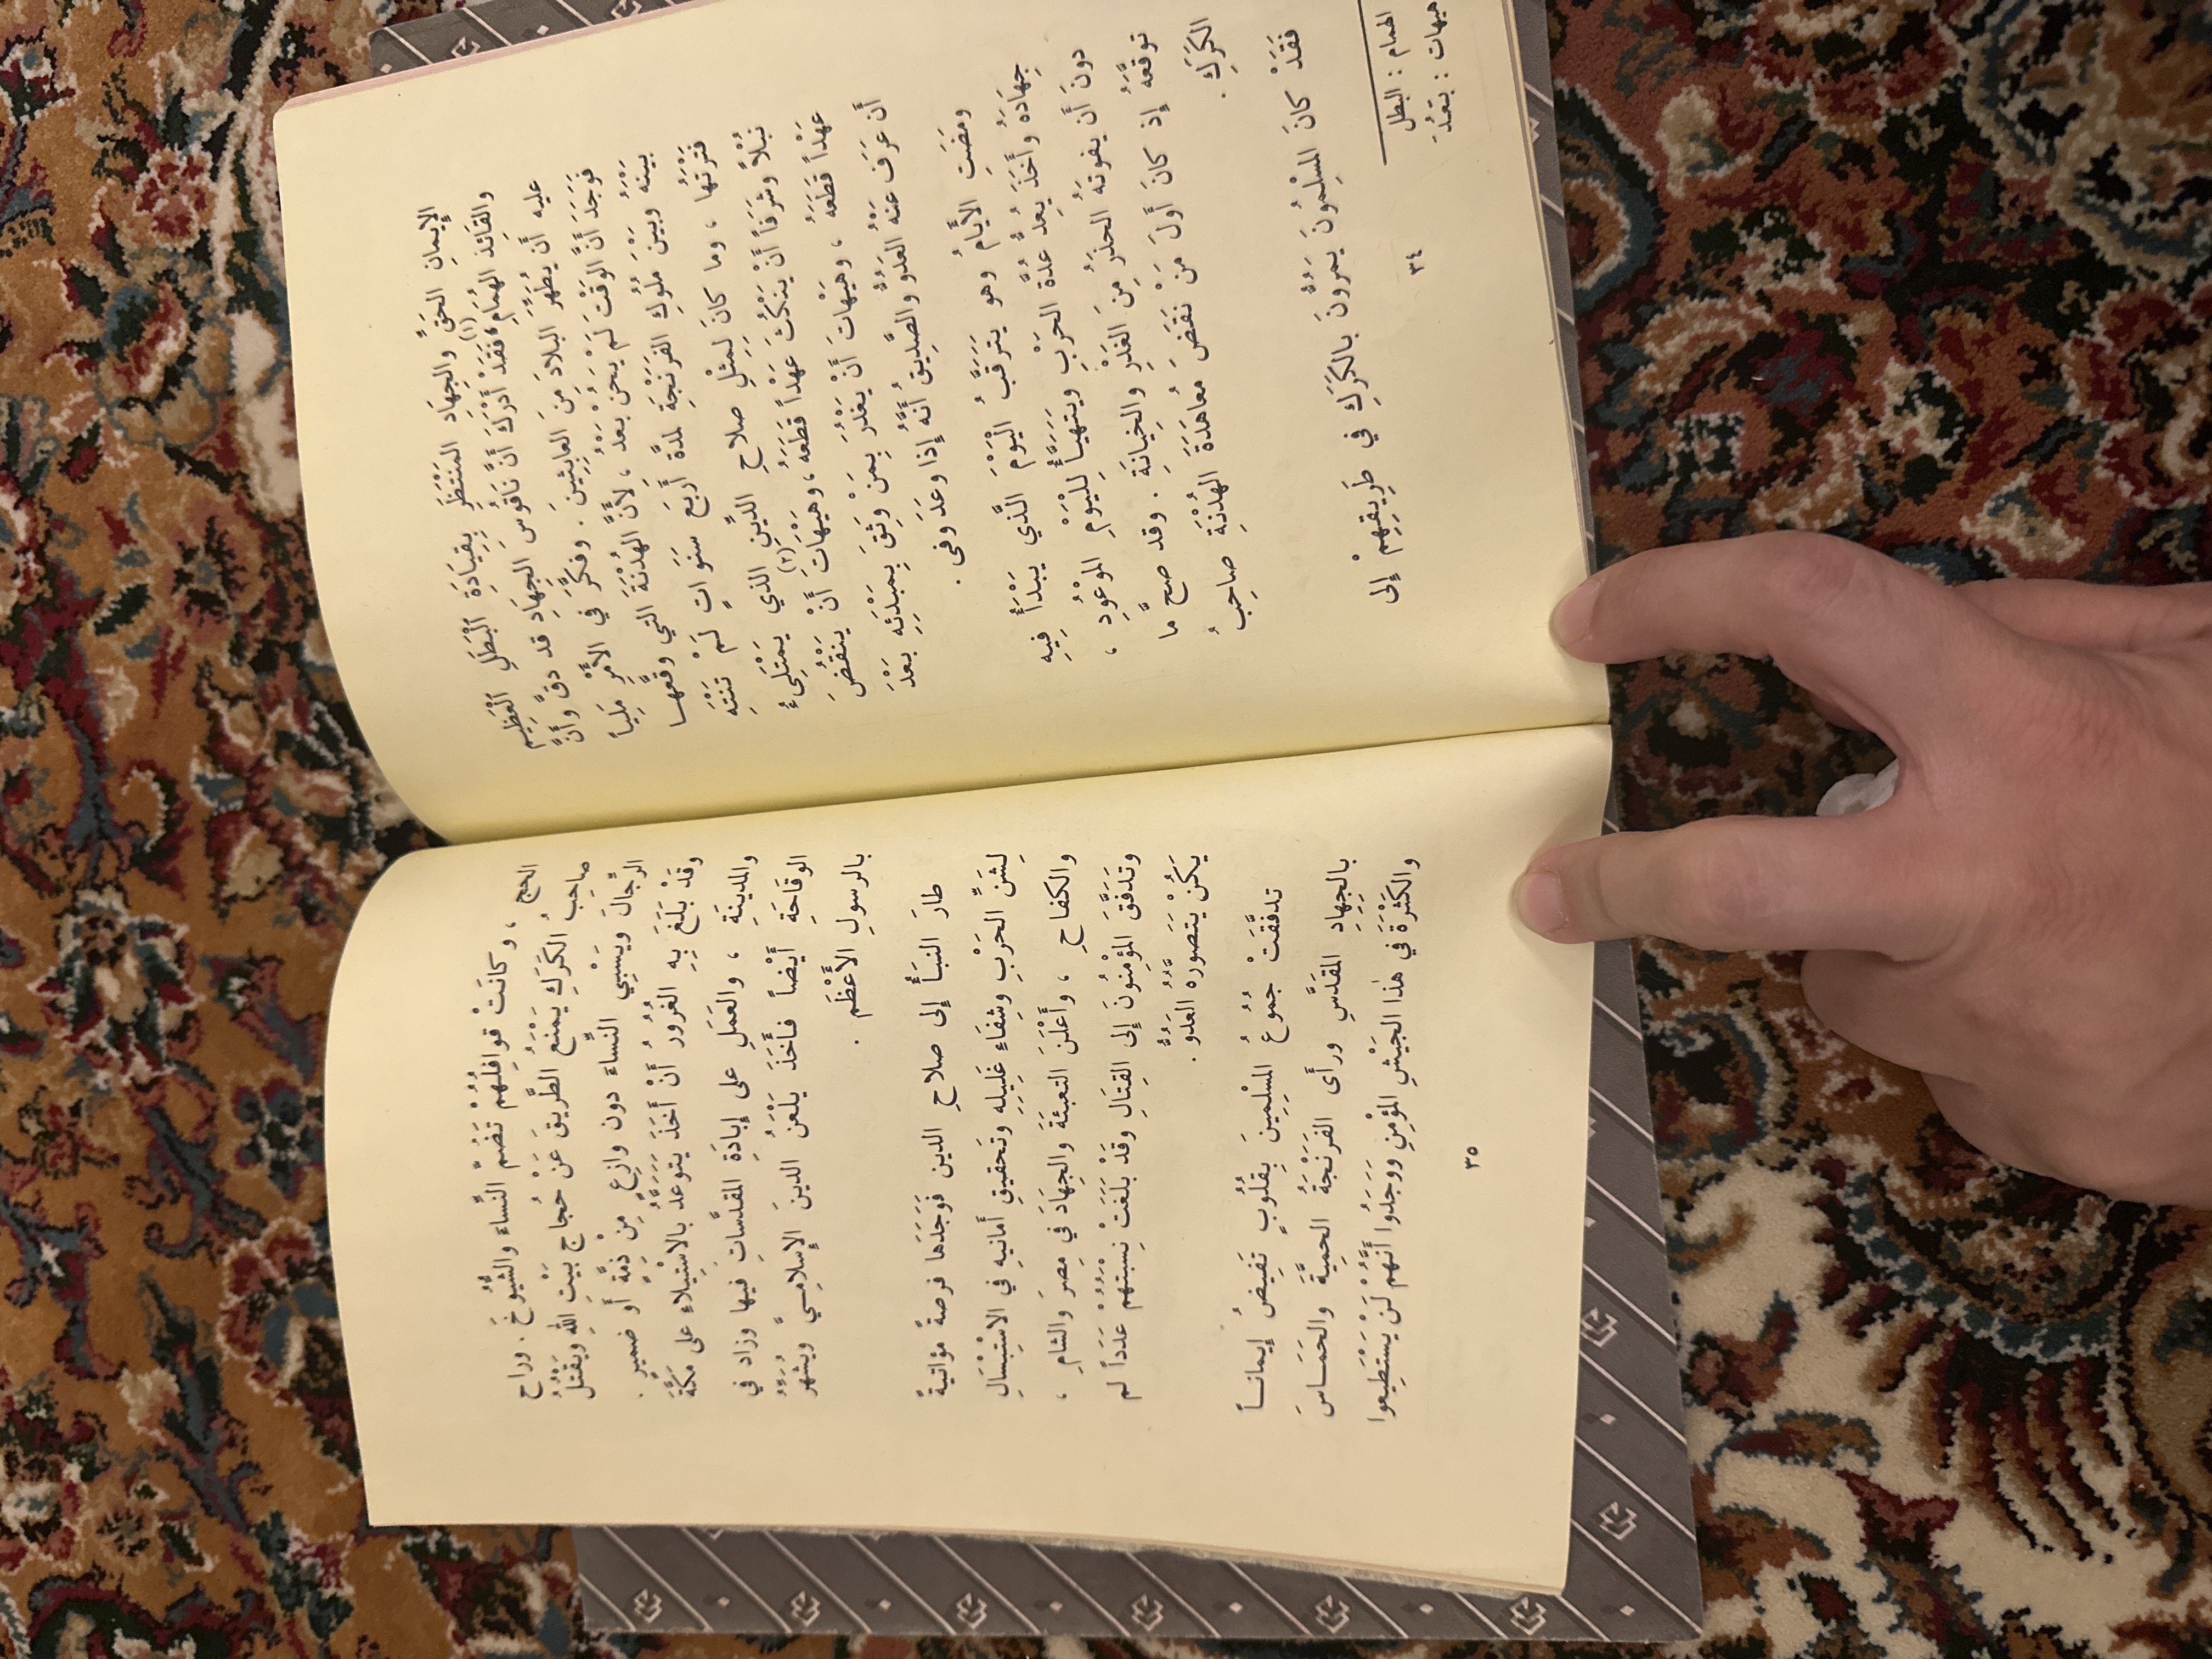 الإيمانِ الحَقِّ والجِهَادِ المنْتَظَرِ بِقِيَادَةِ الْبَطَلِ الْعَظِيمِ
والقَائدِ الهُمَامِ (١) فَقَدْ أَدْرَكَ أَنَّ نَاقُوسَ الجِهَادِ قد دقَّ وأَنَّ
عليه أَن يُطَهِّرَ البلادَ مِنَ العابِثِينَ . وفكَّر في الأَمْرِ مَلِيّاً
فَوَجَدَ أَنَّ الوَقْتَ لَمْ يَحِن بعدُ ، لأَنَّ الهُدْنَةَ التي وقَّعها
بينَهُ وبَيْنَ مُلُوكِ الفَرَنْجَةِ لمدَّة أَربَع سَنَوَاتٍ لَمْ تَنْتَهِ
فَتْرَتُها ، وما كانَ لَمِثْلِ صلاحِ الدِّينِ الذي يَمْتَلِىءُ
نُبْلاً وشَرَفاً أَنْ يَنْكُثَ عَهْداً قَطَعَهُ ، وهَيْهَاتَ (٢) أَنْ يَنْقُضَ
عَهْداً قَطَعَهُ ، وهَيْهَاتَ أَنْ يَغْدُرَ بِمَنْ وَثِقَ بِمَبْدَئِهِ بَعْدَ
أَن عَرَفَ عَنْهُ العَدُوُّ والصَّدِيقُ أَنَّهُ إِذا وعَدَ وفى .
ومَضَتِ الأَيَّامُ وهو يَتَرقَّبُ اليَوْمَ الَّذي يَبْدَأُ فِيهِ
جِهَادَهُ وأَخَذَ يُعِدُّ عُدَّةَ الحَرْبِ ويَتَهَيَّأُ لِلْيَوْمِ الموْعُودِ ،
دونَ أَن يفوتَهُ الحذَرُ مِنَ الغَدْرِ والخِيانَةِ . وقد صحَّ ما
توقَّعَهُ إِذ كانَ أَولَ مَنْ نَقَضَ مُعَاهَدَةَ الهُدْنَةِ صاحِبُ
الكَرَكِ .
فَقَدْ كانَ المسْلِمُونَ يَمرُّونَ بالكَرَكِ في طَرِيقِهِمْ إلى
الهمام : البطل
هيهات : بَعُدَ
٣٤
الحج ، وكانَتْ قوافِلُهُمْ تَضُمُّ النِّسَاءَ والشُّيُوْخَ . وراح
صاحِبُ الكَرَكِ يَمْنَعُ الطَّرِيقَ عَنْ حُجاج بَيْتِ اللهِ ويَقْتُلُ
الرِّجالَ ويَسْبِي النِّساءَ دون وازعٍ مِنْ ذِمَّةٍ أَو ضميرٍ .
وقَدْ بَلَغَ بِهِ الغُرُورُ أَنْ أَخَذَ يتوعَّدُ بالاسْتِيلاءِ على مَكَّةَ
والمدينَةِ ، والعَمَلِ على إِبادَةِ المقدَّساتِ فيها وزاد في
الوقَاحَةِ أَيْضاً فأَخَذَ يَلْعَنُ الدينَ الإِسْلامِيَّ ويُشَهِّرُ
بالرسولِ الأَعْظَم .
طارَ النبَأُ إلى صلاحِ الدين فَوَجَدَها فرصةً مؤاتيةً
لِشَنِّ الحَرْبِ وشِفَاءِ غَلِيلِهِ وتَحقيقِ أَمانيهِ في الاسْتِبْسَالِ
والكفاحِ ، وأَعْلَنَ التعبئَةَ والجِهَادَ في مِصرَ والشامِ ،
وتَدَفَّقَ المؤمِنُونَ إلى القِتَالِ وقَدْ بَلَغَتْ نِسبَتهم عَدَداً لم
يَكُنْ يَتَصَوَّرُهُ العَدُوُّ .
تدفَّقَتْ جُمُوعُ المسْلِمِينَ بِقُلُوْبٍ تَفِيضُ إيماناً
بالجِهَادِ المقدَّسِ ورأَى الفَرَنْجَةُ الحمِيَّةَ والحَمَاسَ
والكَثْرَةَ في هٰذا الجَيْشِ المؤمِنِ ووَجَدُوا أَنَّهُمْ لَنْ يَسْتَطِيعوا
٣٥